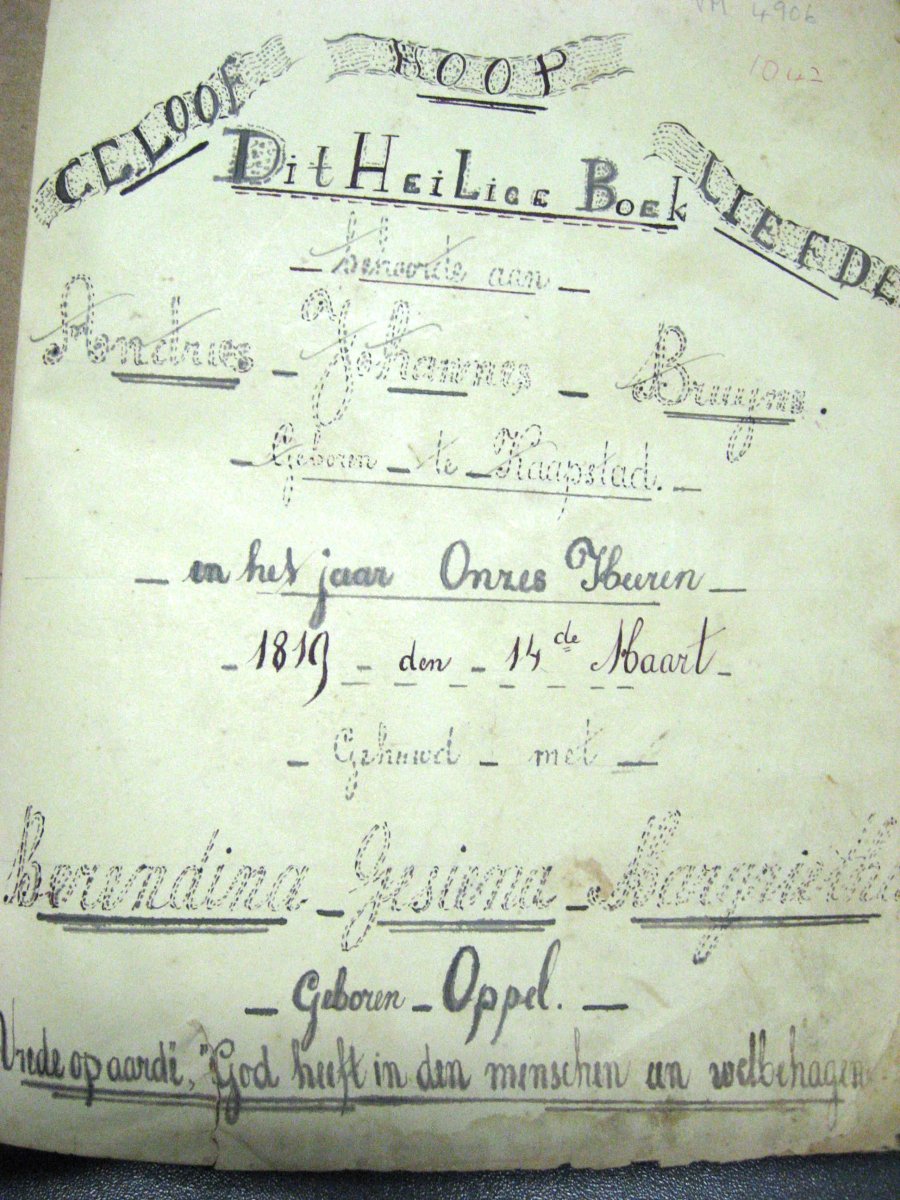 VM 4906
1042
GELOOF HOOP LIEFDE
Dit HEiLiGE BoEk
behoorde aan
Andries - Johannes - Bruyns.
- Geboren - te - Kaapstad. -
- in het jaar Onzes Heeren -
- 1819 - den - 14de Maart -
- Gehuwd - met -
Berendina - Gesiena - Margrietha
- Geboren - Oppel. -
Vrede op aarde, "God heeft in den menschen een welbehagen